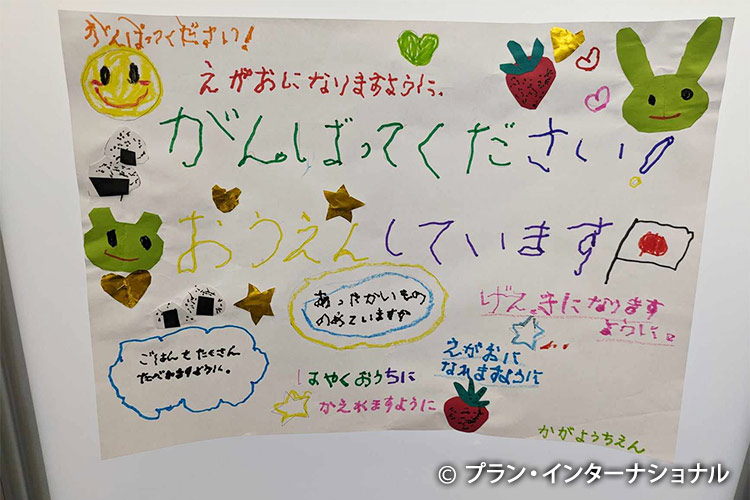 がんばってください!
えがおになりますように。
がんばってください!
おうえんしています
あったかいもの
のめていますか
げんきになります
ように。
ごはんもたくさん
たべれますように。
えがおに
なれますように
はやくおうちに
かえれますように
かがようちえん
© プラン・インターナショナル